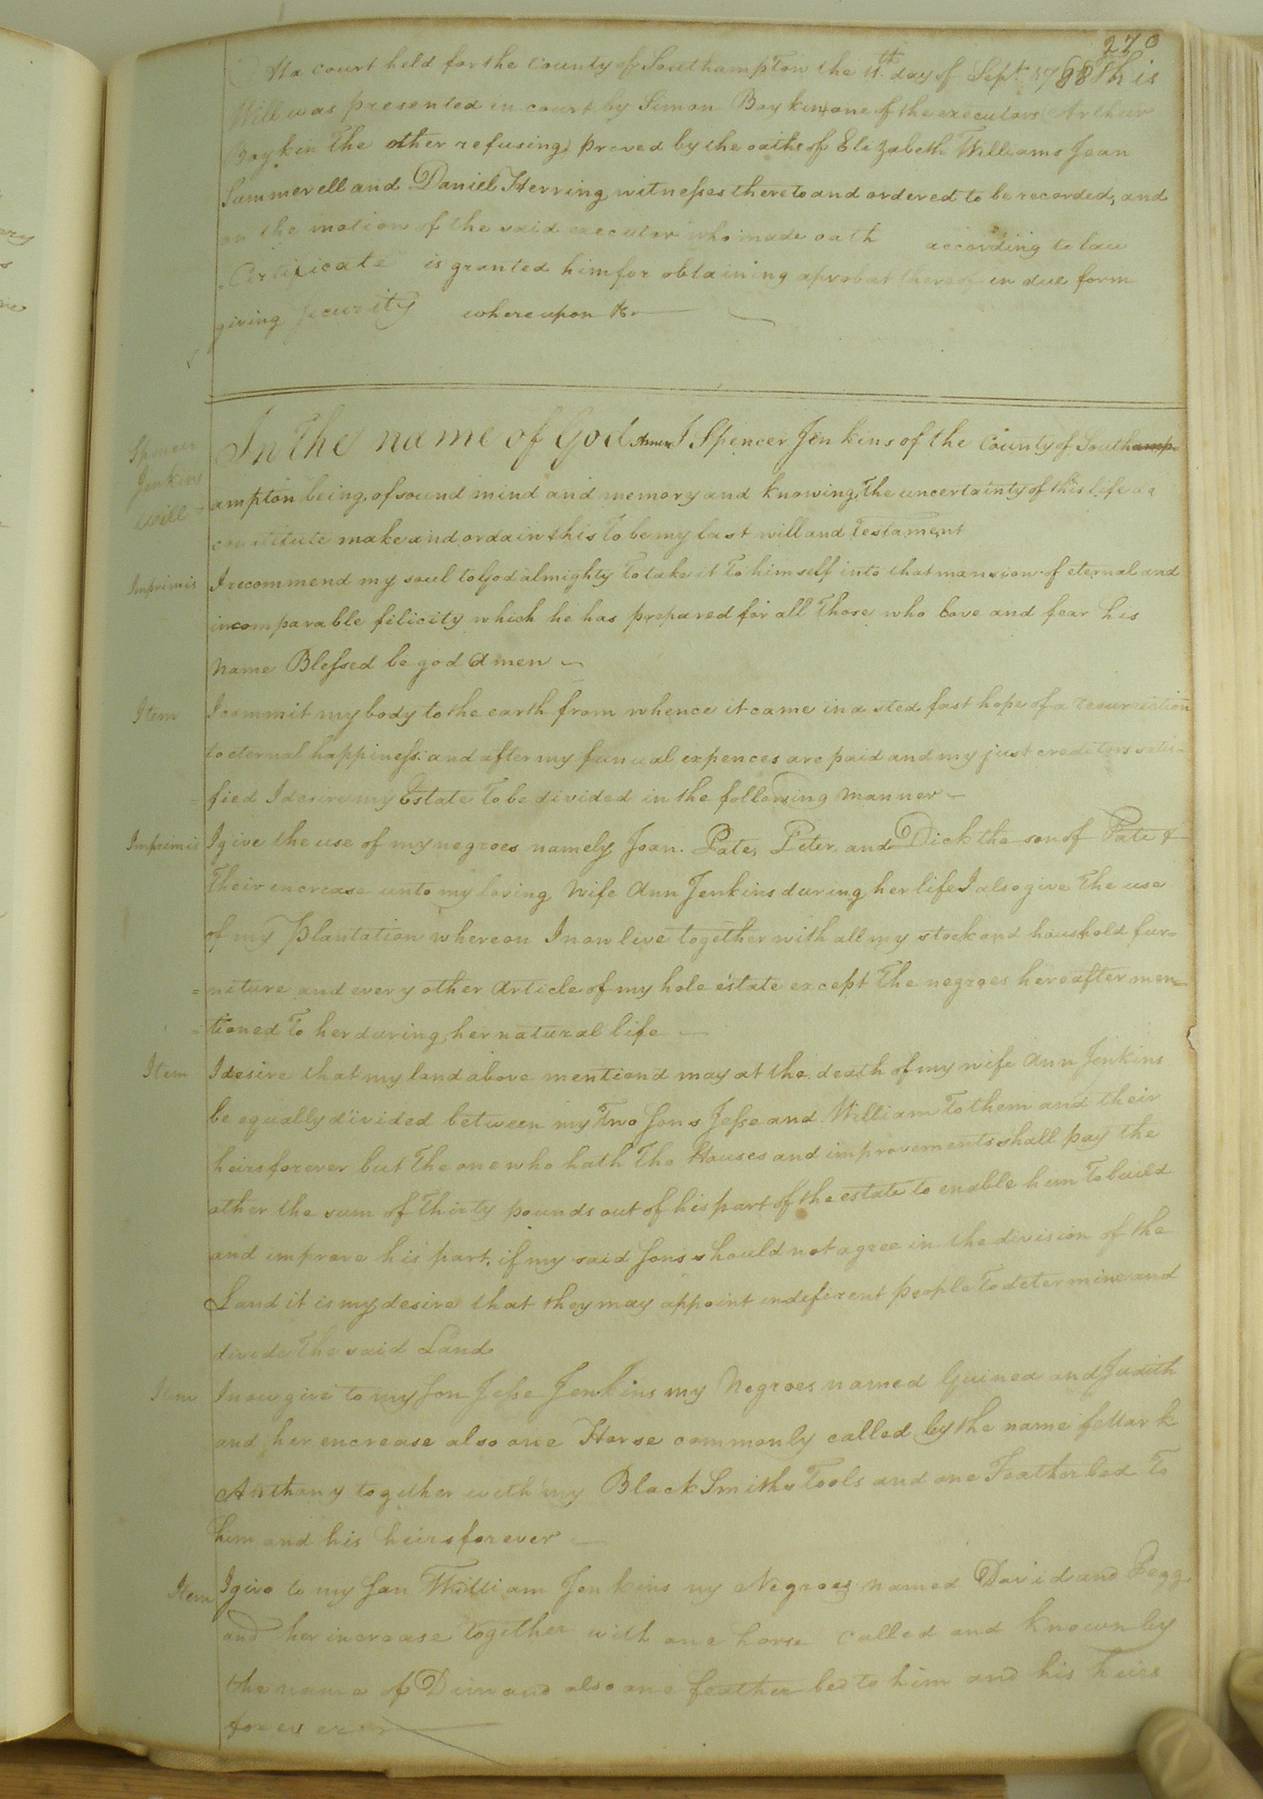 270
At a court held for the County of Southampton the 11th day of Sept. 1788 This
Will was presented in court by Simon Boykin one of the executors Arthur
Boykin the other refusing, proved by the oaths of Elizabeth Williams Jean
Summerell and Daniel Herring witnesses thereto and ordered to be recorded, and
on the motion of the said executor who made oath according to law
Certificate is granted him for obtaining a probat thereof in due form
giving Security whereupon &c
Spencer
Jenkins
Will
In The name of God Amen I Spencer Jenkins of the County of Southamp-
ampton being, of sound mind and memory and knowing, the uncertainty of this life do
constitute make and ordain this To be my last will and Testament
Imprimis I recommend my soul to God almighty To take it To himself into that mansion of eternal and
incomparable felicity which he has prepared for all Those who love and fear his
Name Blessed be god Amen
Item I commit my body to the earth from whence it came in a sted fast hope of a resurrection
to eternal happiness. and after my funual expences are paid and my just creditors satis-
=fied I desire my Estate To be divided in the following manner
Imprimis I give the use of my negroes namely Joan. Pate, Peter, and Dick the son of Pate &
Their encrease unto my loving Wife Ann Jenkins during her life I also give The use
of my Plantation whereon I now live together with all my stock and houshold fur-
=niture and every other Article of my hole estate except The negroes hereafter men-
=tioned To her during her natural life
Item I desire that my land above mentiond may at the death of my wife Ann Jenkins
be equally divided between my Two Sons Jesse and William To them and their
heirs forever but The one who hath The Houses and improvements shall pay the
other the sum of Thirty pounds out of his part of the estate to enable him To build
and improve his part, if my said Sons should not agree in the division of the
Land it is my desire that they may appoint indeferent people To determine and
divide The said Land
Item I now give to my Son Jesse Jenkins my Negroes named Guinea and Judith
and her encrease also one Horse commonly called by the name of Mark
Anthony together with my Black Smiths Tools and one Feather bed To
him and his heirs forever
Item I give to my Son William Jenkins my Negroes named David and Pegg
and her increase together with one horse called and known by
the name of and also one feather bed to him and his heirs
forever